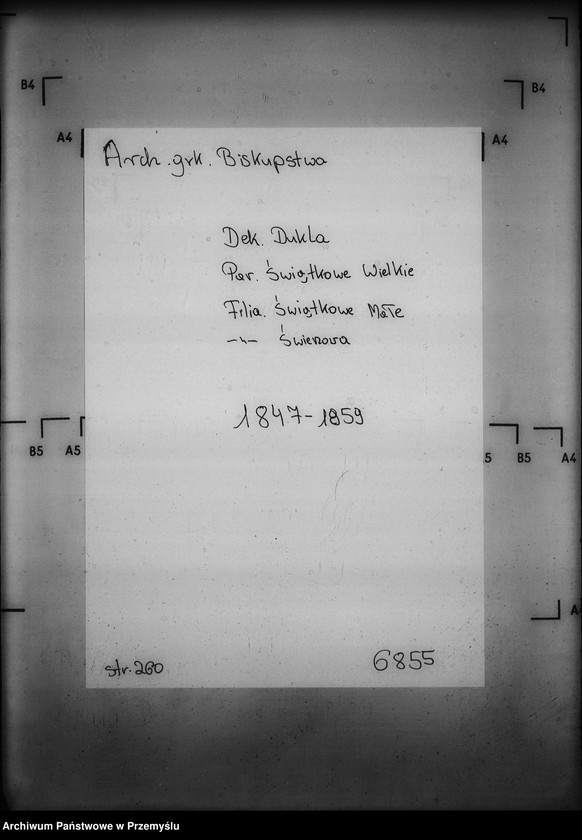 B4
B4
A4
A4
Arch. grk. Biskupstwa
Dek. Dukla
Par. Świątkowe Wielkie
Filia. Świątkowe Małe
-"- Świerzowa
1847-1859
B5
A5
5
B5
A4
A
str. 260
6855
Archiwum Państwowe w Przemyślu